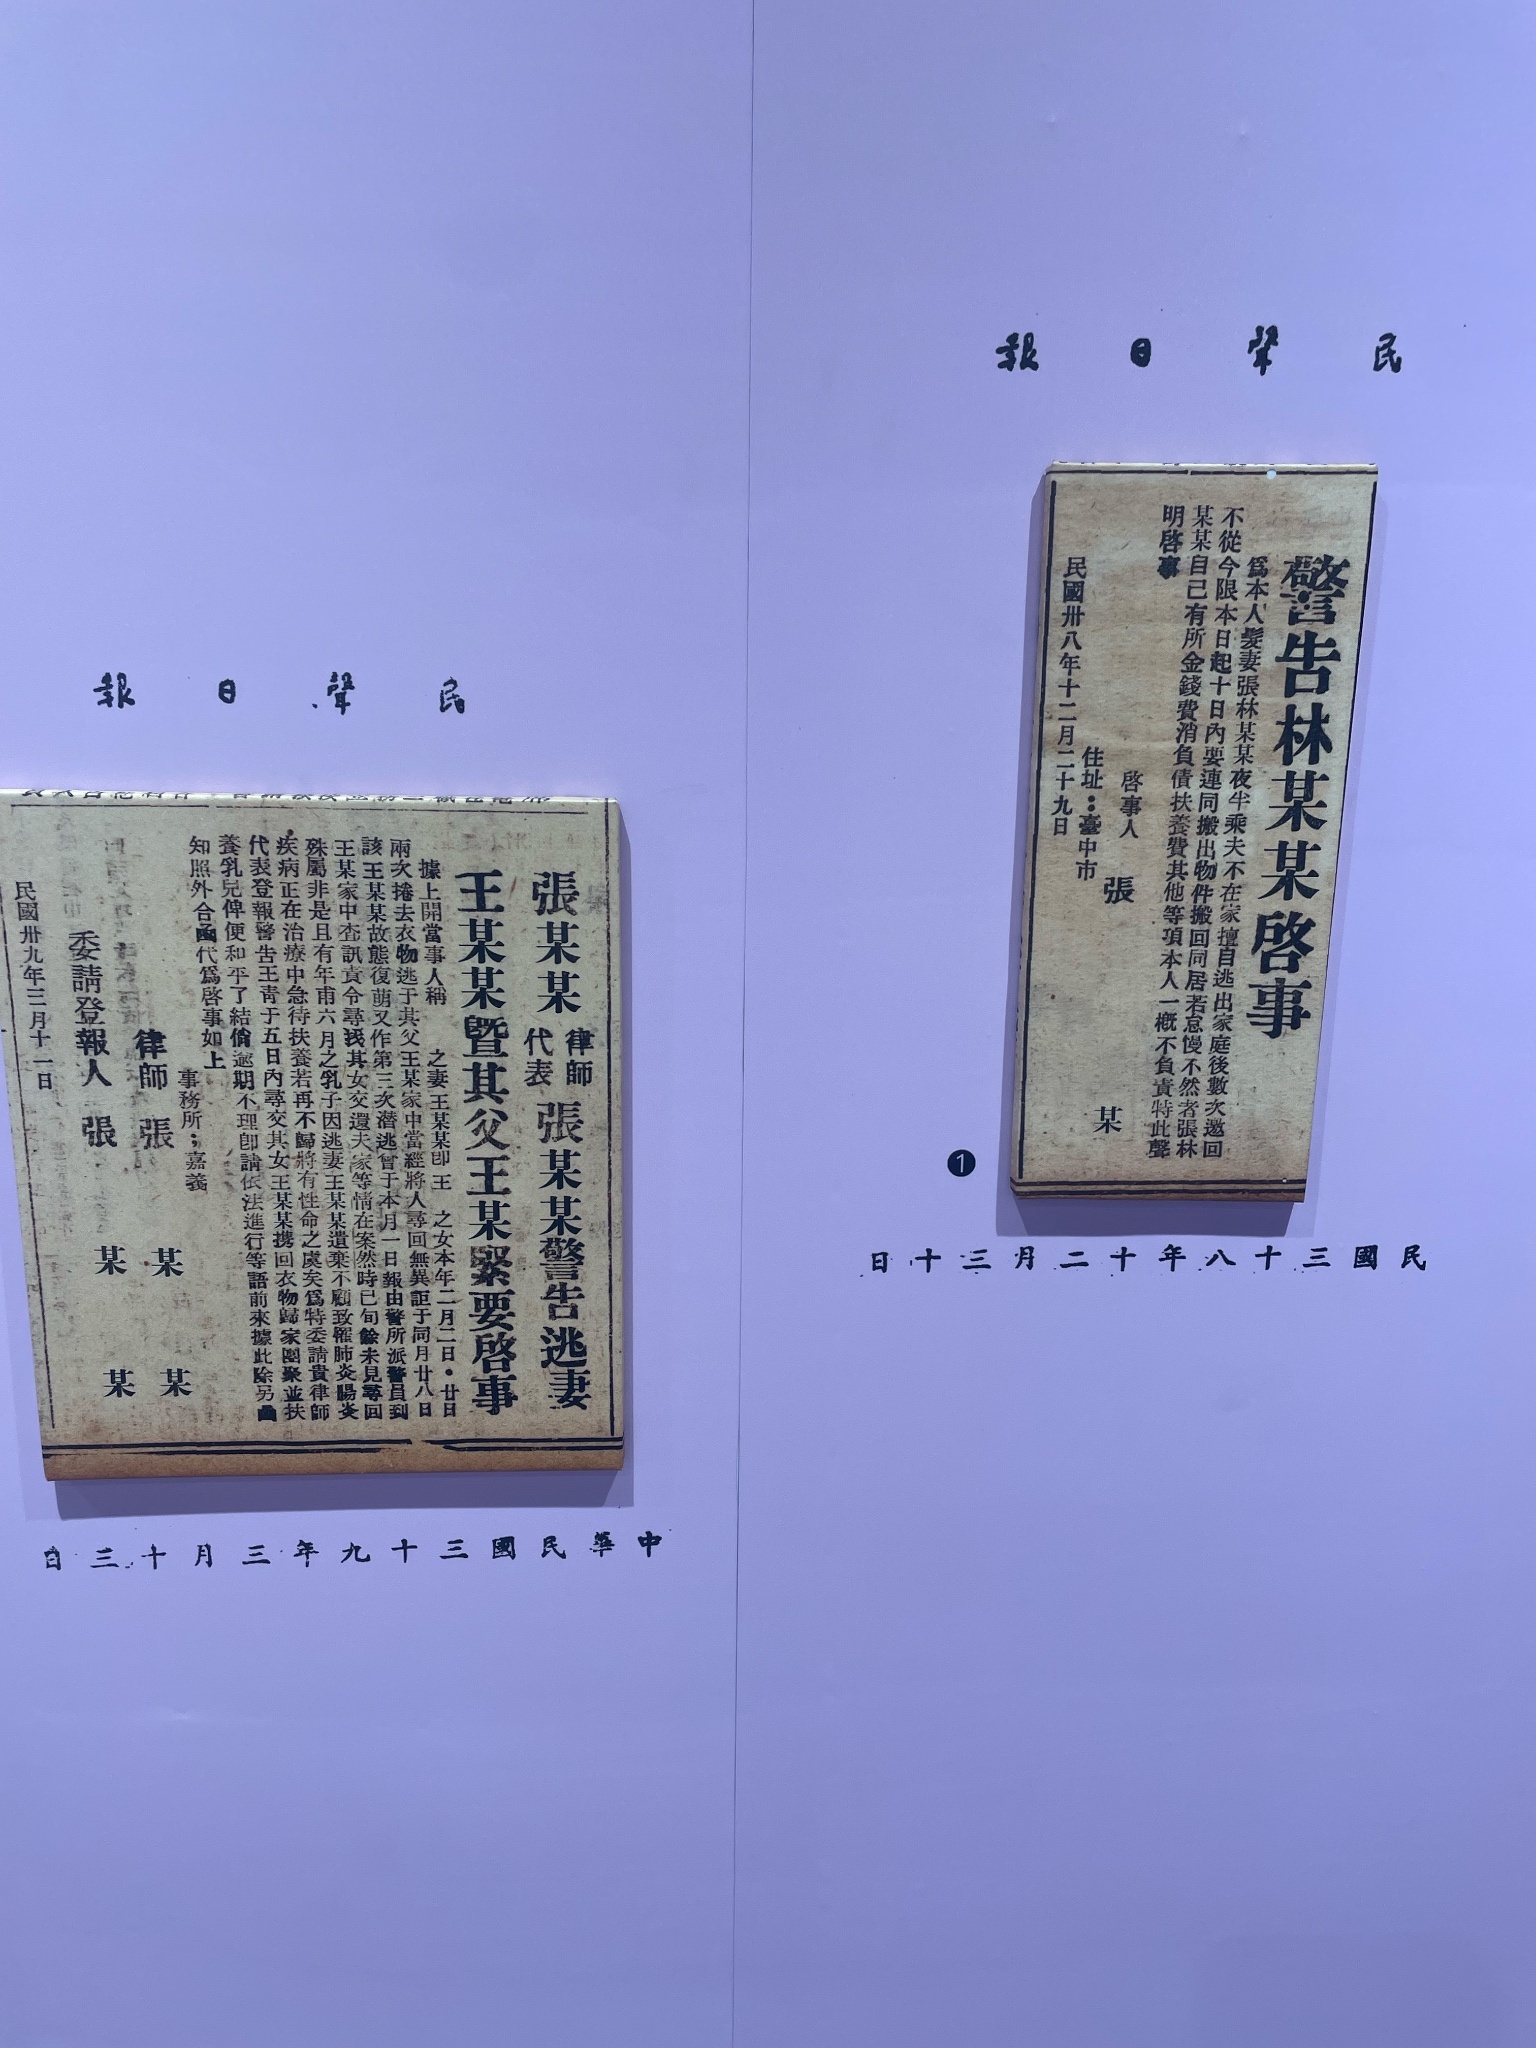 民聲日報
警告林某某啓事
爲本人髮妻張林某某夜半乘夫不在家擅自逃出家庭後數次邀回
不從今限本日起十日內要連同搬出物件搬回同居若怠慢不然者張林
某某自己有所金錢費消負債扶養費其他等項本人一概不負責特此聲
明啓事
啓事人 張 某
住址：臺中市
民國卅八年十二月二十九日
❶
民國三十八年十二月三十日
民聲日報
張某某律師代表張某某警告逃妻
王某某曁其父王某緊要啓事
據上開當事人稱 之妻王某某卽王 之女本年二月二日・廿日
兩次捲去衣物逃于其父王某家中當經將人尋回無異詎于同月廿八日
該王某某故態復萌又作第三次潛逃曾于本月一日報由警所派警員到
王某家中查訊責令尋找其女交還夫家等情在案然時已旬餘未見尋回
殊屬非是且有年甫六月之乳子因逃妻王某某遺棄不顧致罹肺炎腸炎
疾病正在治療中急待扶養若再不歸將有性命之虞矣爲特委請貴律師
代表登報警告王靑于五日內尋交其女王某某携回衣物歸家團聚並扶
養乳兒俾便和平了結倘逾期不理卽請依法進行等語前來據此除另函
知照外合函代爲啓事如上
事務所；嘉義
律師 張 某 某
委請登報人 張 某 某
民國卅九年三月十一日
中華民國三十九年三月十三日